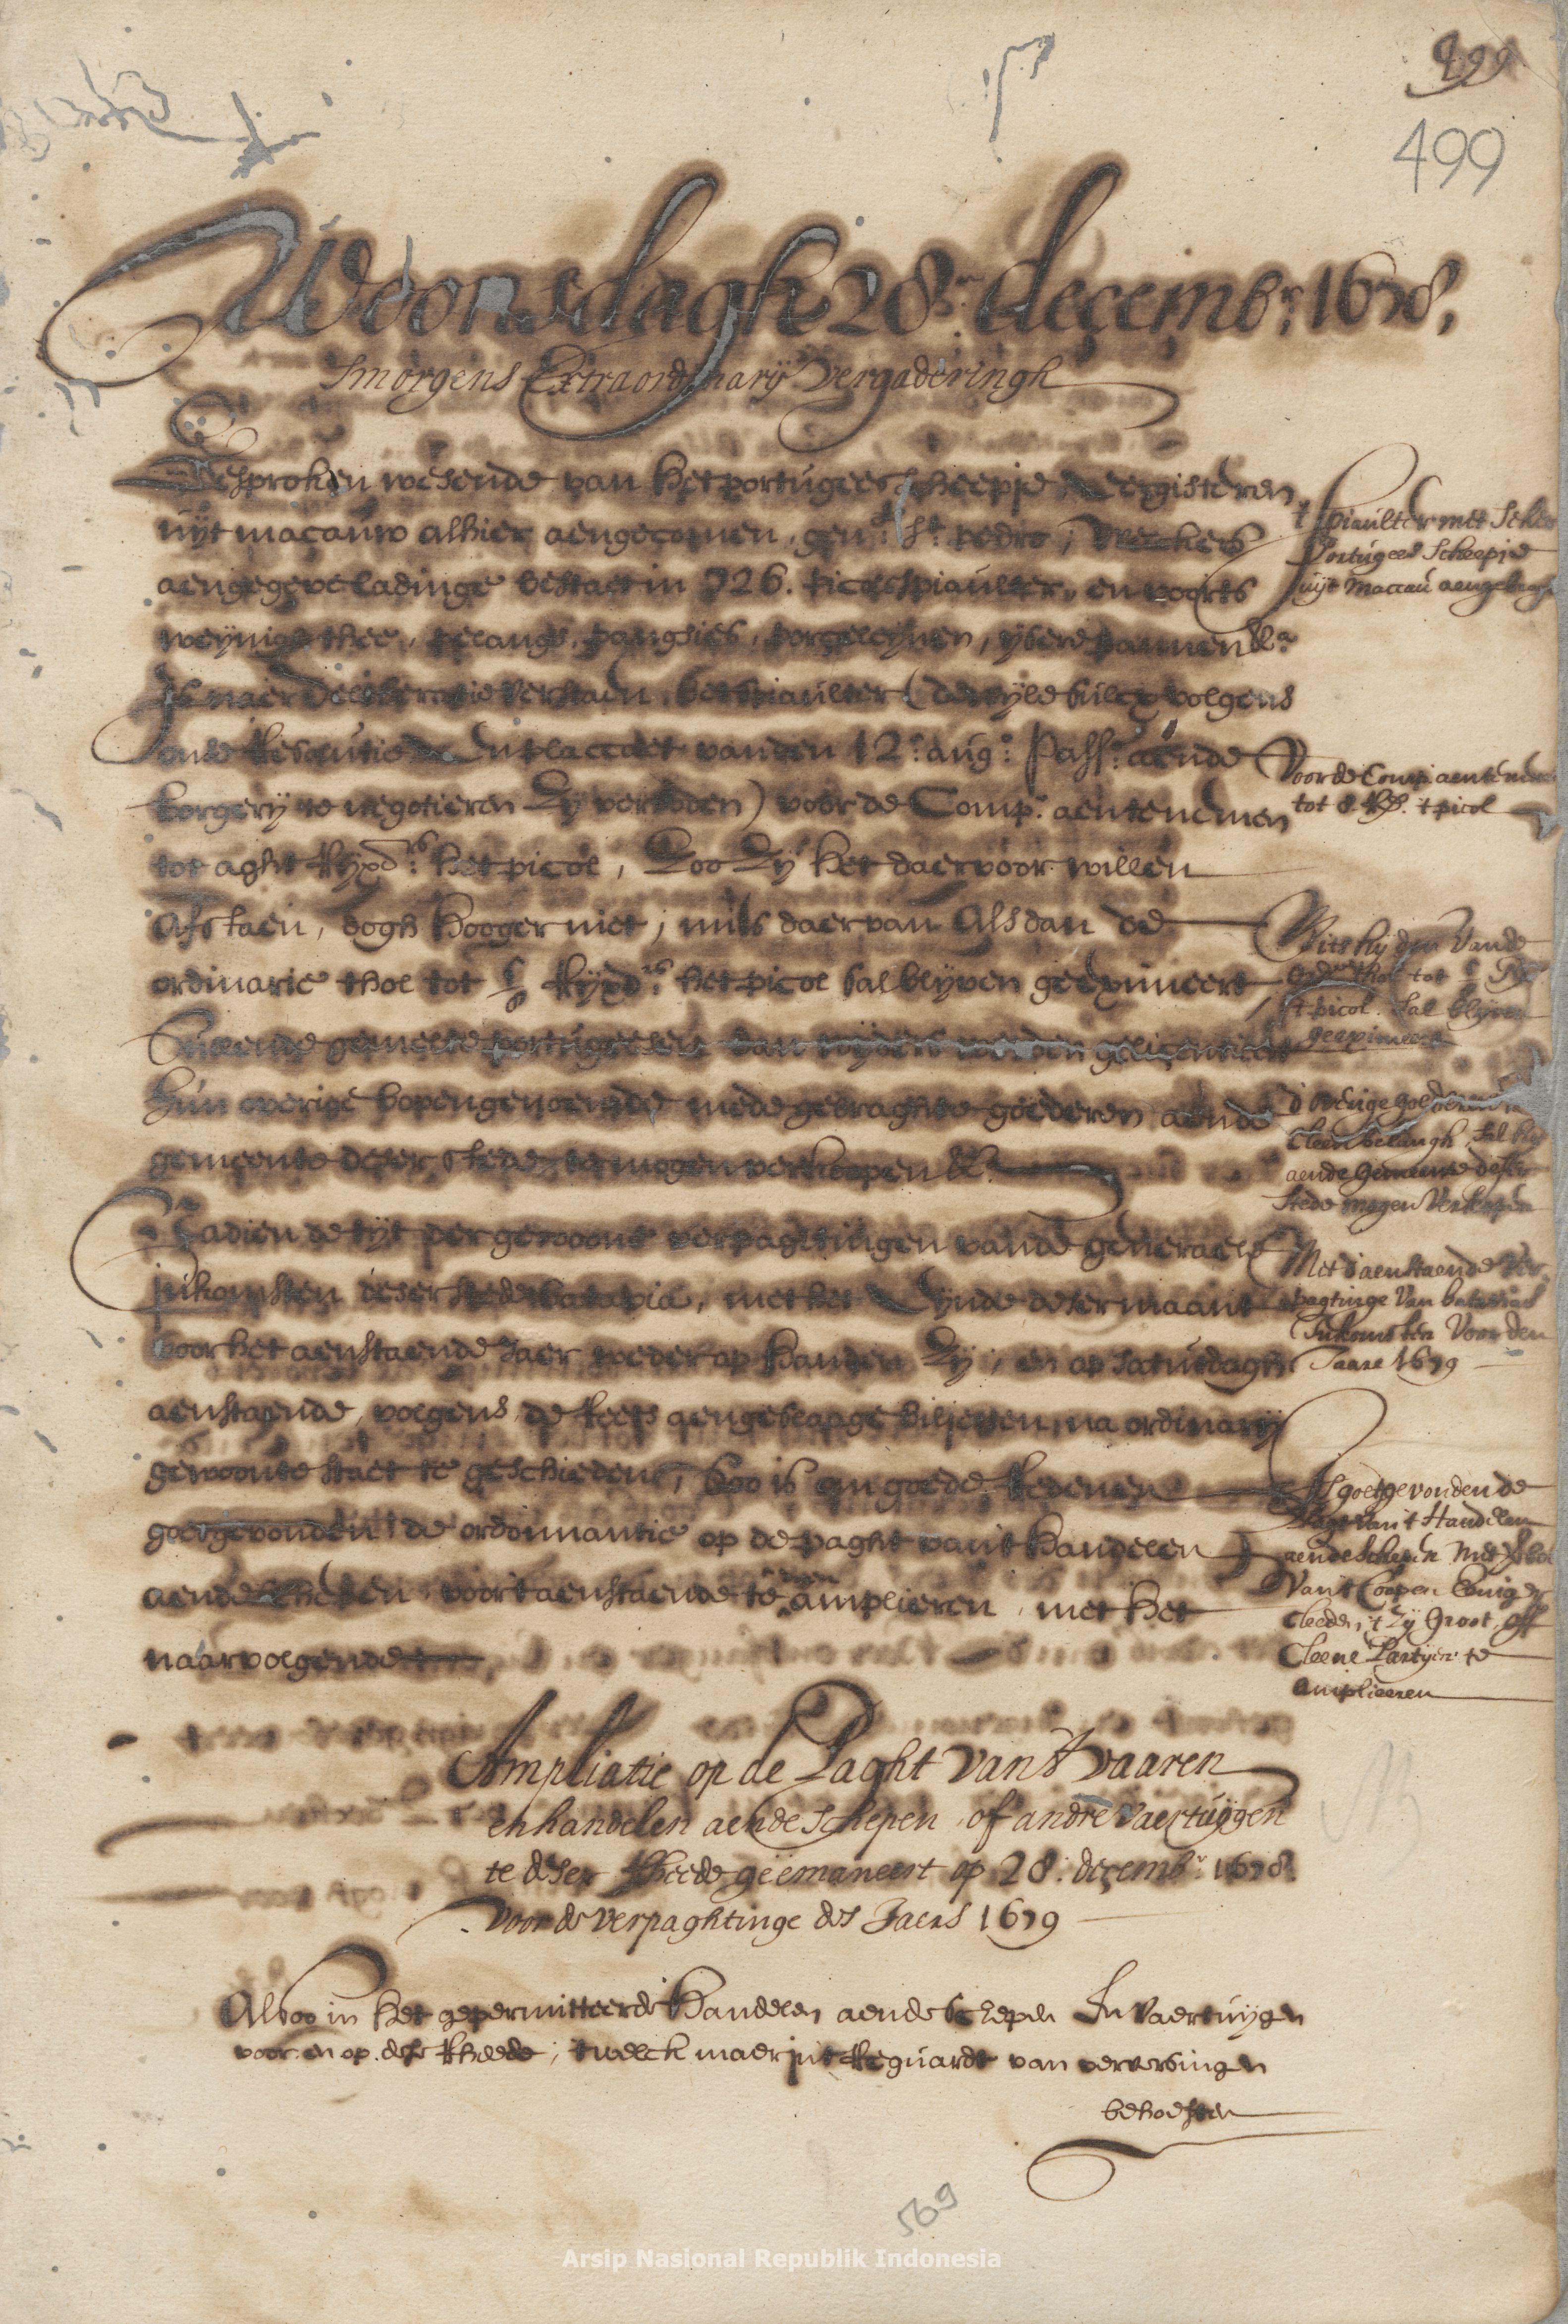 499
499
Woonsdagh 28.en decembr: 1678,
Smorgens Extraordinarij Vergaderingh
Gesproken wesende van het portugees scheepje, eergisteren
uijt macauw alhier aengecomen, gent: St: Pedro, welkers
aengegeve ladinge bestaet in 726. picols spiaulter, en voorts
weijnigh thee, pelangs, pangsies, porceleijnen, ijsere pannen &a
Is naer deliberatie verstaen, het spiaulter (dewijle sulcx volgens
onse resolutie en placcaet vanden 12: aug: pass: aende
borgerij te negotieren Zij verboden) voor de Comp. aentenemen
tot aght Rijxdrs: het picol, Zoo Zij het daervoor willen
afstaen, dogh hooger niet, mits daervan alsdan de
ordinarie thol tot Rijxdrs: het picol sal blijven geëximeert,
gemelde portugeesen dan wijders werden gelicentieert
hun overige bovengenoemde mede gebraghte goederen aende
gemeente deser stede te mogen verkoopen &a.
Nadien de tijt der gewoone verpaghtingen vande generaele
inkomsten deser stede batavia, met het Eijnde deser maant
voor het aenstaende Jaer weder op handen Zij, en op saturdagh
aenstaende, volgens de reets aengeslaage biljetten, na ordinarij
gewoonte staet te geschieden, soo is om goede redenen
goetgevonden de ordonnantie op de paght van't handelen
aende schepen, voor't aenstaende te amplieren, met het
naarvolgende
't Spiaulter met seker
Portugees Scheepje
uijt Maccau aengebraght
Voor de Comp: aentenemen
tot 8. Rx. 't picol
Mits hij den vande
ord: thol tot
't picol. sal blijven
geeximeert
d'overige goederen van
cleen belangh, sal hij
aende gemeente deser
stede mogen verkopen
Met d'aenstaende Ver-
pagtinge van batavias
Inkomsten voor den
Jaare 1679
Is goetgevonden de
Pagt van't Handelen
aende schepen met
van't Coopen Eenige
cleeden, 't Zij Groot, off
Cleene Partijen te
amplieeren
Ampliatie op de Paght van't vaaren
en handelen aende schepen, of andre vaertuijgen
te deser rheede geëmaneert op 28: decembr: 1678.
voor de verpaghtinge des Jaers 1679
Alsoo in het gepermitteerde handelen aende schepen En vaertuijgen
voor en op dese Rheede, twelck maer int reguardt van verversingen
behoesten
569
Arsip Nasional Republik Indonesia